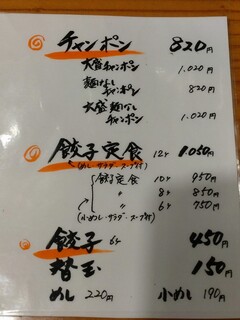 チャンポン 820円
大盛チャンポン 1.020円
麺なしチャンポン 820円
大盛麺なしチャンポン 1.020円
餃子定食 12ケ 1050円
(めし・サラダ・スープ付)
餃子定食 10ケ 950円
〃 8ケ 850円
〃 6ケ 750円
(小めし・サラダ・スープ付)
餃子 6ケ 450円
替玉 150円
めし 220円 小めし 190円